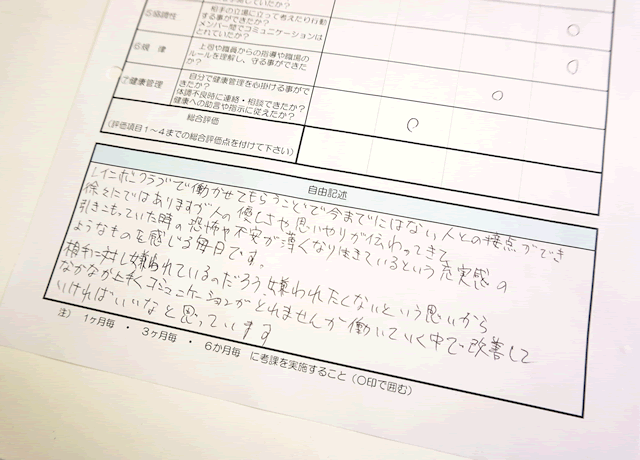 していたか？
⑤協調性
相手の立場に立って考えたり行動
する事ができたか？
メンバー間でコミュニケーションは
とれていたか？
⑥規　律
上司や職員からの指導や職場の
ルールを理解し、守る事ができた
か？
⑦健康管理
自分で健康管理を心掛ける事がで
きたか？
体調不良時に連絡・相談できたか？
健康への助言や指示に従えたか？
総合評価
（評価項目１～４までの総合評価点を付けて下さい）
自由記述
レインボークラブで働かせてもらうことで今までにはない人との接点ができ
徐々にではありますが人の優しさや思いやりが伝わってきて
引きこもっていた時の恐怖や不安が薄くなり生きているという充実感の
ようなものを感じる毎日です。
相手に対し嫌われているのだろう嫌われたくないという思いから
なかなか上手くコミュニケーションがとれませんが働いていく中で改善して
いければいいなと思っています
注）　１ヶ月毎　・　３ヶ月毎　・　６か月毎　に考課を実施すること（〇印で囲む）